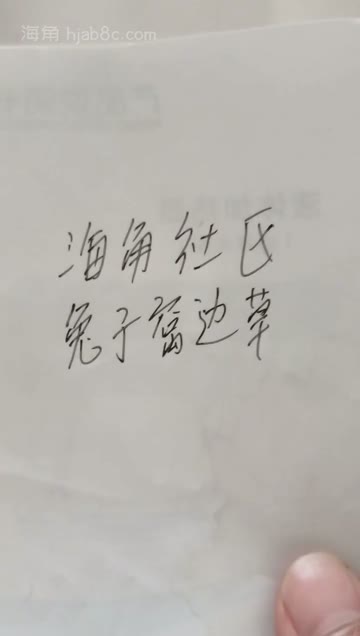 海角 hjab8c.com
海角社区
兔子窝边草